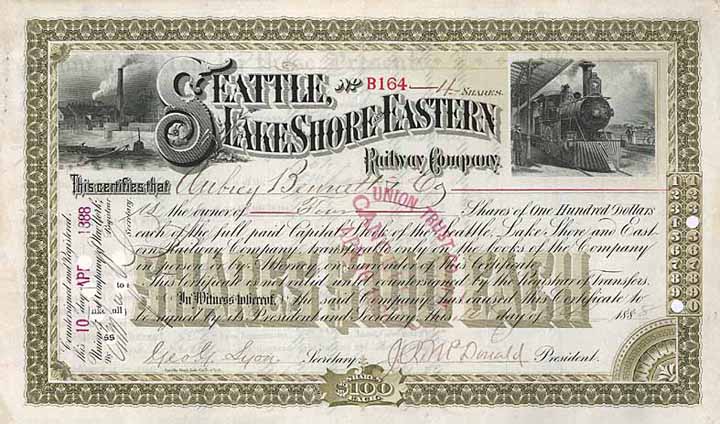 SEATTLE,
No B164 4 SHARES
LAKE SHORE AND EASTERN
Railway Company.
This certifies that Aubrey Bennett & Co
is the owner of Four Shares of One Hundred Dollars
each of the full paid Capital Stock of the Seattle, Lake Shore and East-
ern Railway Company, transferable only on the books of the Company
in person or by Attorney, on surrender of this Certificate.
This Certificate is not valid until countersigned by the Registrar of Transfers.
In Witness whereof, the said Company has caused this Certificate to
be signed by its President and Secretary, this day of 188
Geo G. Lyon Secretary. President.
Countersigned and Registered,
this 10 day APR 1888
Registrar
Secretary
UNION TRUST CO
SHARES
$100
EACH